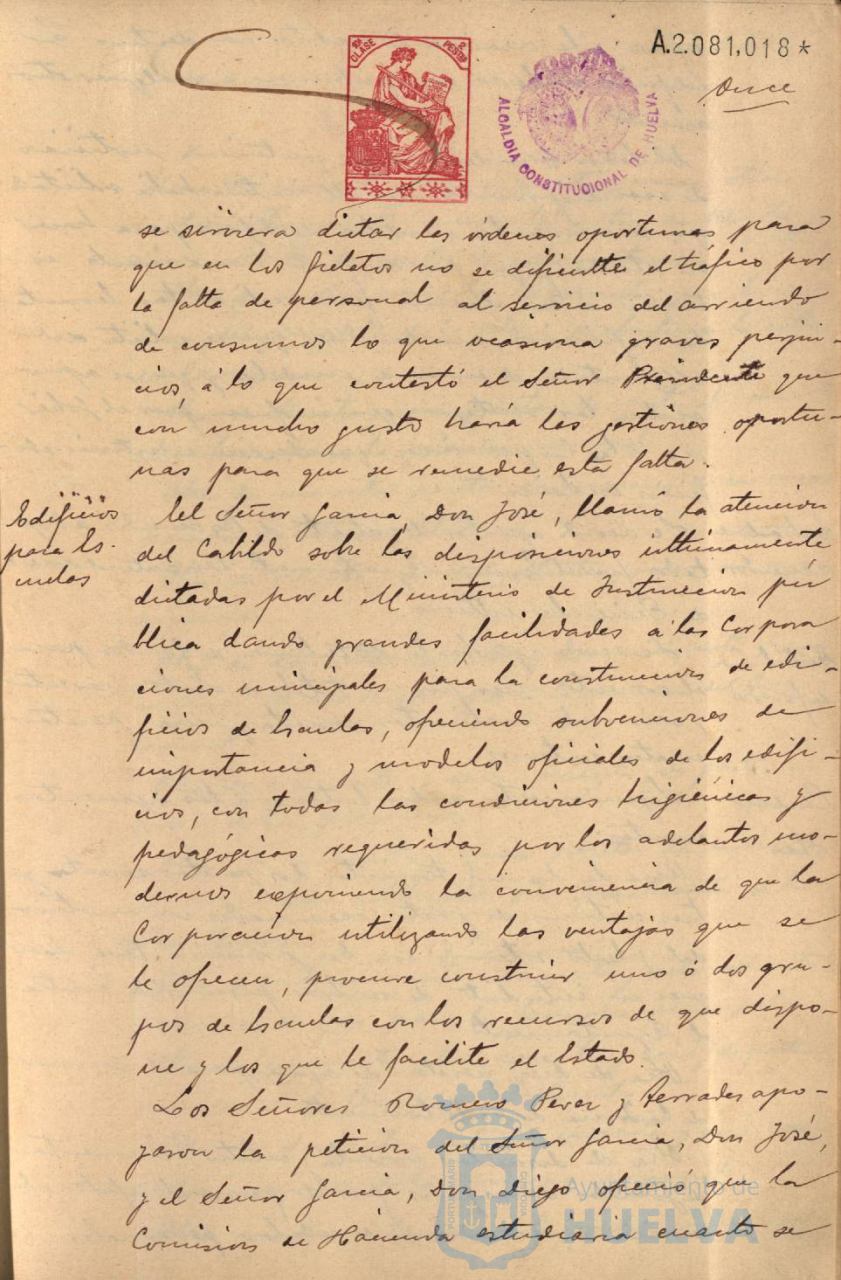 10ª CLASE
2 PESETAS
ALCALDIA CONSTITUCIONAL DE HUELVA
A.2.081,018*
Once
se sirviera dictar las órdenes oportunas para
que en los fielatos no se dificulte el tráfico por
la falta de personal al servicio del arriendo
de consumos lo que ocasiona graves perjui-
cios, á lo que contestó el Señor Presidente que
con mucho gusto haría las gestiones oportu-
nas para que se remedie esta falta.
Edificios
para Es-
cuelas
El Señor Garcia, Don José, llamó la atencion
del Cabildo sobre las disposiciones ultimamente
dictadas por el Ministerio de Instruccion pú
blica dando grandes facilidades á las Corpora
ciones municipales para la construccion de edi-
ficios de Escuelas, ofreciendo subvenciones de
importancia y modelos oficiales de los edifi-
cios, con todas las condiciones higiénicas y
pedagógicas requeridas por los adelantos mo-
dernos exponiendo la conveniencia de que la
Corporacion utilizando las ventajas que se
le ofrecen, procure construir uno ó dos gru-
pos de Escuelas con los recursos de que dispo-
ne y los que le facilite el Estado.
Los Señores Romero Perez y Terrades apo-
yaron la peticion del Señor Garcia, Don José,
y el Señor Garcia, Don Diego ofreció que la
Comision de Hacienda estudiaria cuanto se
Ayuntamiento de
HUELVA